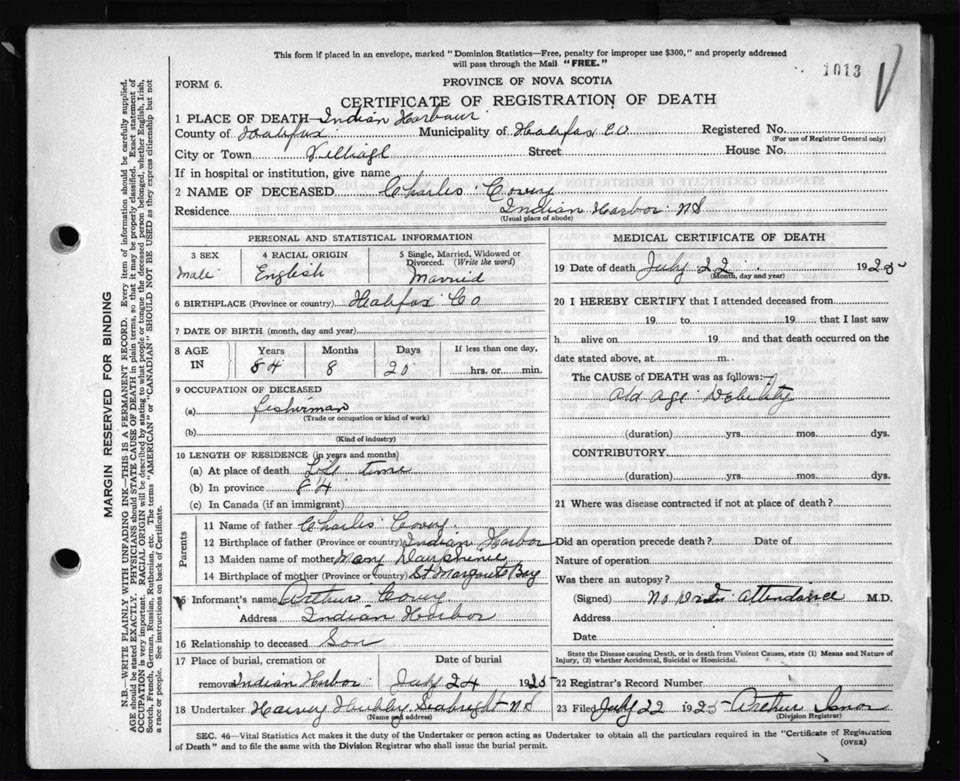 This form if placed in an envelope, marked "Dominion Statistics—Free, penalty for improper use $300," and properly addressed
will pass through the Mail "FREE."
1013
FORM 6.
PROVINCE OF NOVA SCOTIA
CERTIFICATE OF REGISTRATION OF DEATH
1 PLACE OF DEATH Indian Harbour
County of Halifax Municipality of Halifax Co Registered No.
(For use of Registrar General only)
City or Town Villiagl Street House No.
If in hospital or institution, give name
2 NAME OF DECEASED Charles Covey
Residence Indian Harbor NS
(Usual place of abode)
PERSONAL AND STATISTICAL INFORMATION
3 SEX 4 RACIAL ORIGIN 5 Single, Married, Widowed or
Divorced. (Write the word)
Male English Married
6 BIRTHPLACE (Province or country) Halifax Co
7 DATE OF BIRTH (month, day and year)
8 AGE IN Years Months Days If less than one day,
84 8 20 hrs. or min.
9 OCCUPATION OF DECEASED
(a) fisherman
(Trade or occupation or kind of work)
(b)
(Kind of industry)
10 LENGTH OF RESIDENCE (in years and months)
(a) At place of death Life time
(b) In province 84
(c) In Canada (if an immigrant)
Parents
11 Name of father Charles Covey
12 Birthplace of father (Province or country) Indian Harbor
13 Maiden name of mother Mary Dauphinie
14 Birthplace of mother (Province or country) St Margarets Bay
15 Informant's name Arthur Covey
Address Indian Harbor
16 Relationship to deceased Son
17 Place of burial, cremation or Date of burial
removal Indian Harbor July 24 1925
18 Undertaker Harvey Hubley Seabright NS
(Name and address)
MEDICAL CERTIFICATE OF DEATH
19 Date of death July 22 1925
(Month, day and year)
20 I HEREBY CERTIFY that I attended deceased from
19 to 19 that I last saw
h alive on 19 and that death occurred on the
date stated above, at m.
The CAUSE of DEATH was as follows:—
Old Age Debility
(duration) yrs. mos. dys.
CONTRIBUTORY
(duration) yrs. mos. dys.
21 Where was disease contracted if not at place of death?
Did an operation precede death? Date of
Nature of operation
Was there an autopsy?
(Signed) No Dr in attendance M.D.
Address
Date
State the Disease causing Death, or in death from Violent Causes, state (1) Means and Nature of
Injury, (2) whether Accidental, Suicidal or Homicidal.
22 Registrar's Record Number
23 Filed July 22 1925 Arthur
(Division Registrar)
SEC. 46—Vital Statistics Act makes it the duty of the Undertaker or person acting as Undertaker to obtain all the particulars required in the "Certificate of Registration
of Death" and to file the same with the Division Registrar who shall issue the burial permit.
(OVER)
MARGIN RESERVED FOR BINDING
N.B.—WRITE PLAINLY WITH UNFADING INK—THIS IS A PERMANENT RECORD. Every item of information should be carefully supplied.
AGE should be stated EXACTLY. PHYSICIANS should STATE CAUSE OF DEATH in plain terms, so that it may be properly classified. Exact statement of
OCCUPATION is very important. RACIAL ORIGIN will be described by stating to what people or tongue the deceased person belonged, whether English, Irish,
Scotch, French, German, Russian, Ruthenian, etc. The terms "AMERICAN" or "CANADIAN" SHOULD NOT BE USED as they express citizenship but not
a race or people. See instructions on back of Certificate.